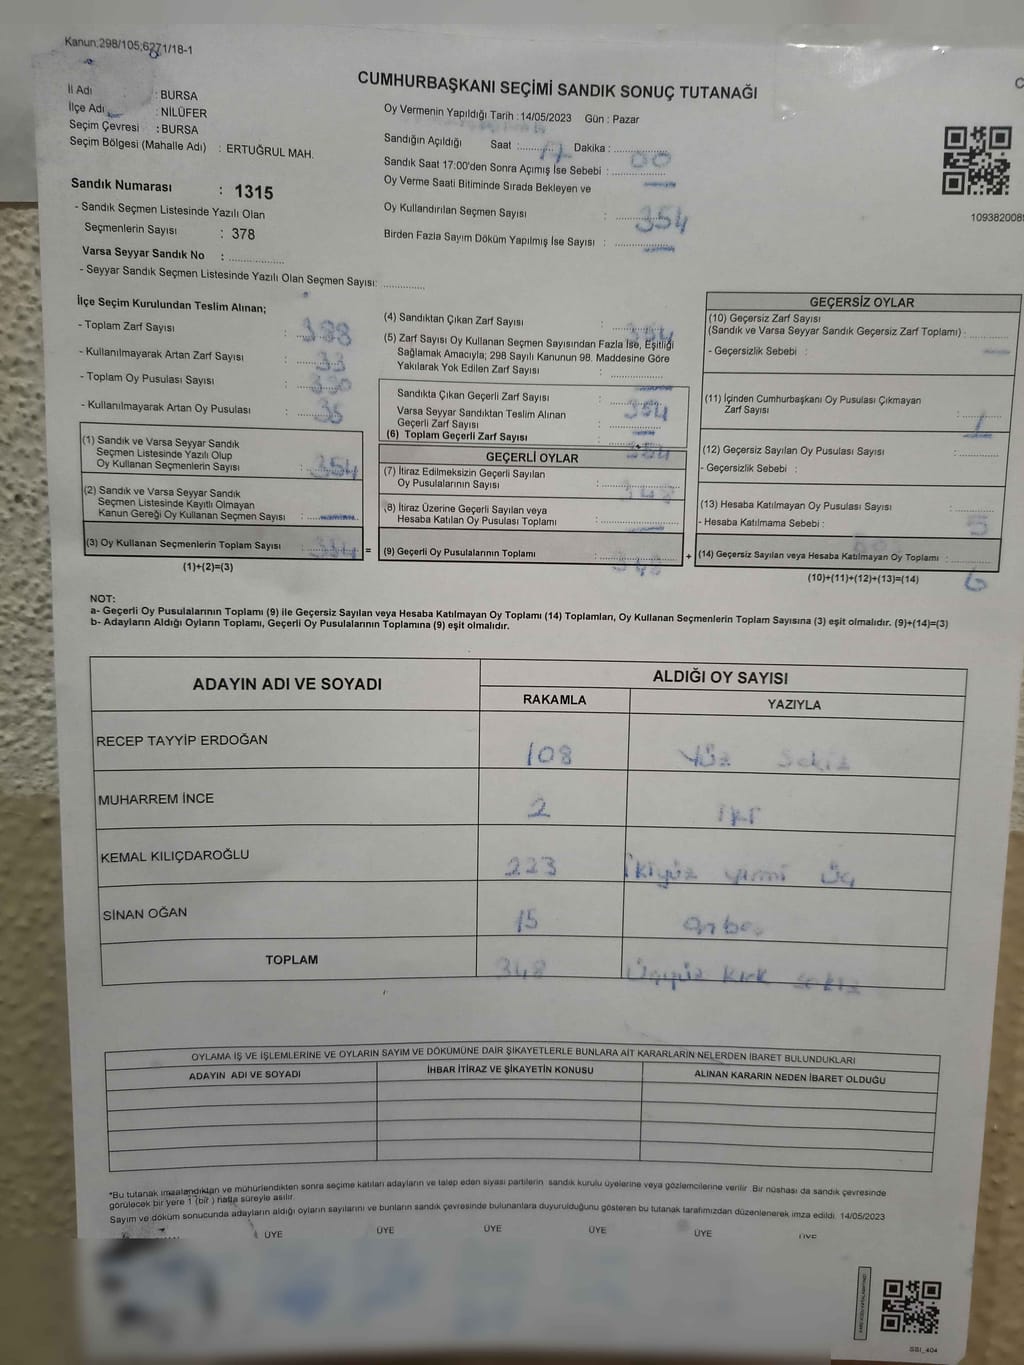 Kanun,298/105;6271/18-1
CUMHURBAŞKANI SEÇİMİ SANDIK SONUÇ TUTANAĞI
İl Adı : BURSA
İlçe Adı : NİLÜFER
Seçim Çevresi : BURSA
Seçim Bölgesi (Mahalle Adı) : ERTUĞRUL MAH.
Oy Vermenin Yapıldığı Tarih : 14/05/2023 Gün : Pazar
Sandığın Açıldığı Saat : 17 Dakika : 00
Sandık Saat 17:00'den Sonra Açımış İse Sebebi :
Oy Verme Saati Bitiminde Sırada Bekleyen ve
Oy Kullandırılan Seçmen Sayısı : 354
Birden Fazla Sayım Döküm Yapılmış İse Sayısı :
109382008
Sandık Numarası : 1315
- Sandık Seçmen Listesinde Yazılı Olan
Seçmenlerin Sayısı : 378
Varsa Seyyar Sandık No :
- Seyyar Sandık Seçmen Listesinde Yazılı Olan Seçmen Sayısı:
İlçe Seçim Kurulundan Teslim Alınan;
- Toplam Zarf Sayısı :
- Kullanılmayarak Artan Zarf Sayısı : 33
- Toplam Oy Pusulası Sayısı :
- Kullanılmayarak Artan Oy Pusulası :
(1) Sandık ve Varsa Seyyar Sandık
Seçmen Listesinde Yazılı Olup
Oy Kullanan Seçmenlerin Sayısı : 354
(2) Sandık ve Varsa Seyyar Sandık
Seçmen Listesinde Kayıtlı Olmayan
Kanun Gereği Oy Kullanan Seçmen Sayısı :
(3) Oy Kullanan Seçmenlerin Toplam Sayısı : 354 =
(1)+(2)=(3)
(4) Sandıktan Çıkan Zarf Sayısı : 354
(5) Zarf Sayısı Oy Kullanan Seçmen Sayısından Fazla İse, Eşitliği
Sağlamak Amacıyla; 298 Sayılı Kanunun 98. Maddesine Göre
Yakılarak Yok Edilen Zarf Sayısı :
Sandıkta Çıkan Geçerli Zarf Sayısı : 354
Varsa Seyyar Sandıktan Teslim Alınan
Geçerli Zarf Sayısı :
(6) Toplam Geçerli Zarf Sayısı : 354
GEÇERLİ OYLAR
(7) İtiraz Edilmeksizin Geçerli Sayılan
Oy Pusulalarının Sayısı : 348
(8) İtiraz Üzerine Geçerli Sayılan veya
Hesaba Katılan Oy Pusulası Toplamı :
(9) Geçerli Oy Pusulalarının Toplamı : 348 +
GEÇERSİZ OYLAR
(10) Geçersiz Zarf Sayısı
(Sandık ve Varsa Seyyar Sandık Geçersiz Zarf Toplamı) :
- Geçersizlik Sebebi :
(11) İçinden Cumhurbaşkanı Oy Pusulası Çıkmayan
Zarf Sayısı : 1
(12) Geçersiz Sayılan Oy Pusulası Sayısı :
- Geçersizlik Sebebi :
(13) Hesaba Katılmayan Oy Pusulası Sayısı :
- Hesaba Katılmama Sebebi : 5
(14) Geçersiz Sayılan veya Hesaba Katılmayan Oy Toplamı : 6
(10)+(11)+(12)+(13)=(14)
NOT:
a- Geçerli Oy Pusulalarının Toplamı (9) ile Geçersiz Sayılan veya Hesaba Katılmayan Oy Toplamı (14) Toplamları, Oy Kullanan Seçmenlerin Toplam Sayısına (3) eşit olmalıdır. (9)+(14)=(3)
b- Adayların Aldığı Oyların Toplamı, Geçerli Oy Pusulalarının Toplamına (9) eşit olmalıdır.
ADAYIN ADI VE SOYADI
ALDIĞI OY SAYISI
RAKAMLA YAZIYLA
RECEP TAYYİP ERDOĞAN 108 Yüz Sekiz
MUHARREM İNCE 2 iki
KEMAL KILIÇDAROĞLU 223 İkiyüz yirmi üç
SİNAN OĞAN 15 onbeş
TOPLAM 348 Üçyüz kırk sekiz
OYLAMA İŞ VE İŞLEMLERİNE VE OYLARIN SAYIM VE DÖKÜMÜNE DAİR ŞİKAYETLERLE BUNLARA AİT KARARLARIN NELERDEN İBARET BULUNDUKLARI
ADAYIN ADI VE SOYADI İHBAR İTİRAZ VE ŞİKAYETİN KONUSU ALINAN KARARIN NEDEN İBARET OLDUĞU
*Bu tutanak imzalandıktan ve mühürlendikten sonra seçime katılan adayların ve talep eden siyasi partilerin sandık kurulu üyelerine veya gözlemcilerine verilir. Bir nüshası da sandık çevresinde
görülecek bir yere 1 (bir) hafta süreyle asılır.
Sayım ve döküm sonucunda adayların aldığı oyların sayılarını ve bunların sandık çevresinde bulunanlara duyurulduğunu gösteren bu tutanak tarafımızdan düzenlenerek imza edildi. 14/05/2023
ÜYE ÜYE ÜYE ÜYE ÜYE ÜYE
SSI_404